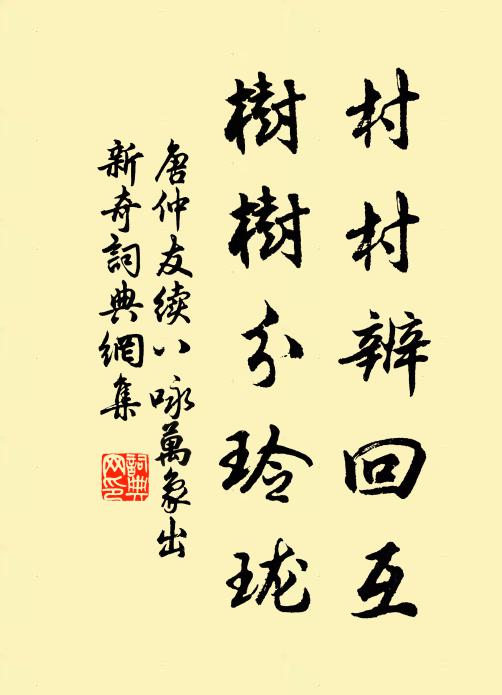 村村辨回互
樹樹分玲珑
唐仲友续八咏萬象出
新奇詞典網集
詞典网印